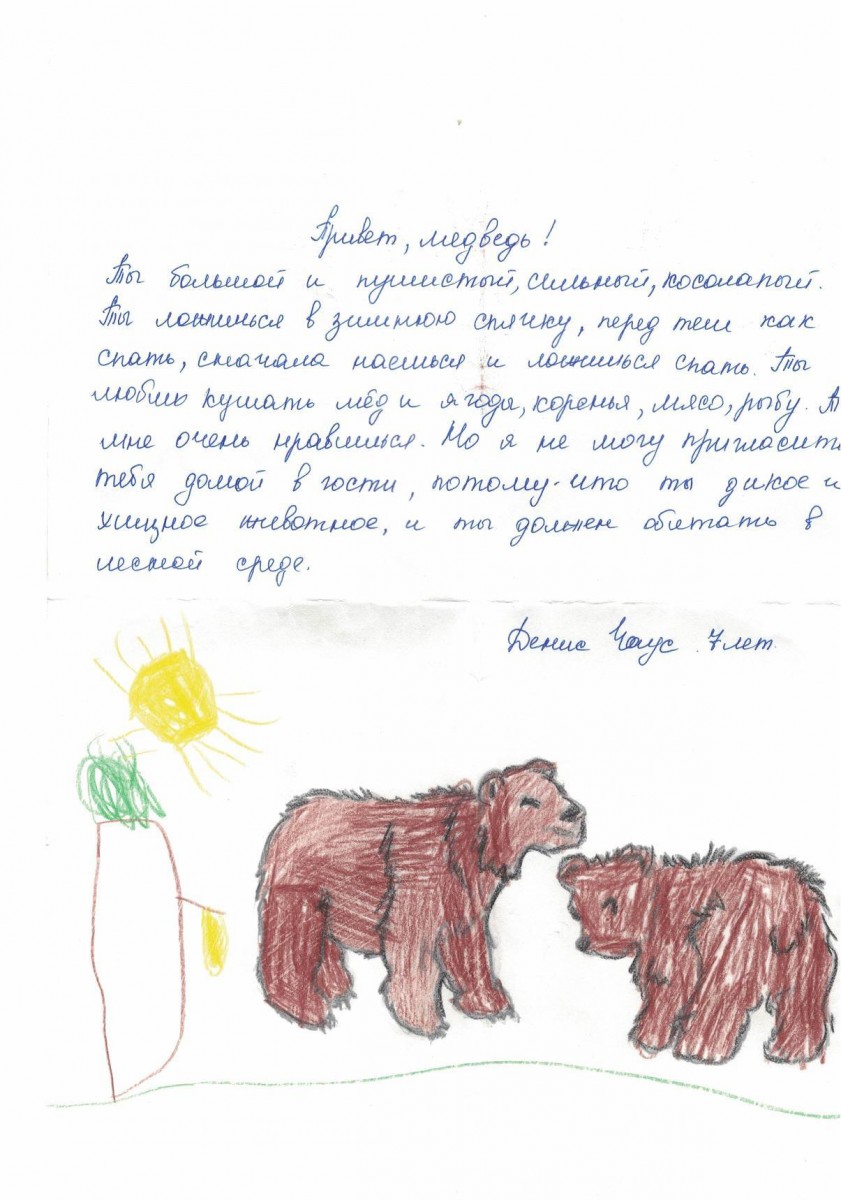 Привет, медведь!
Ты большой и пушистый, сильный, косолапый.
Ты ложишься в зимнюю спячку, перед тем как
спать, сначала наешься и ложишься спать. Ты
любишь кушать мёд и ягоды, коренья, мясо, рыбу. Т
мне очень нравишься. Но я не могу пригласить
тебя домой в гости, потому-что ты дикое и
хищное животное, и ты должен обитать в
лесной среде.
Денис Чаус 7 лет.